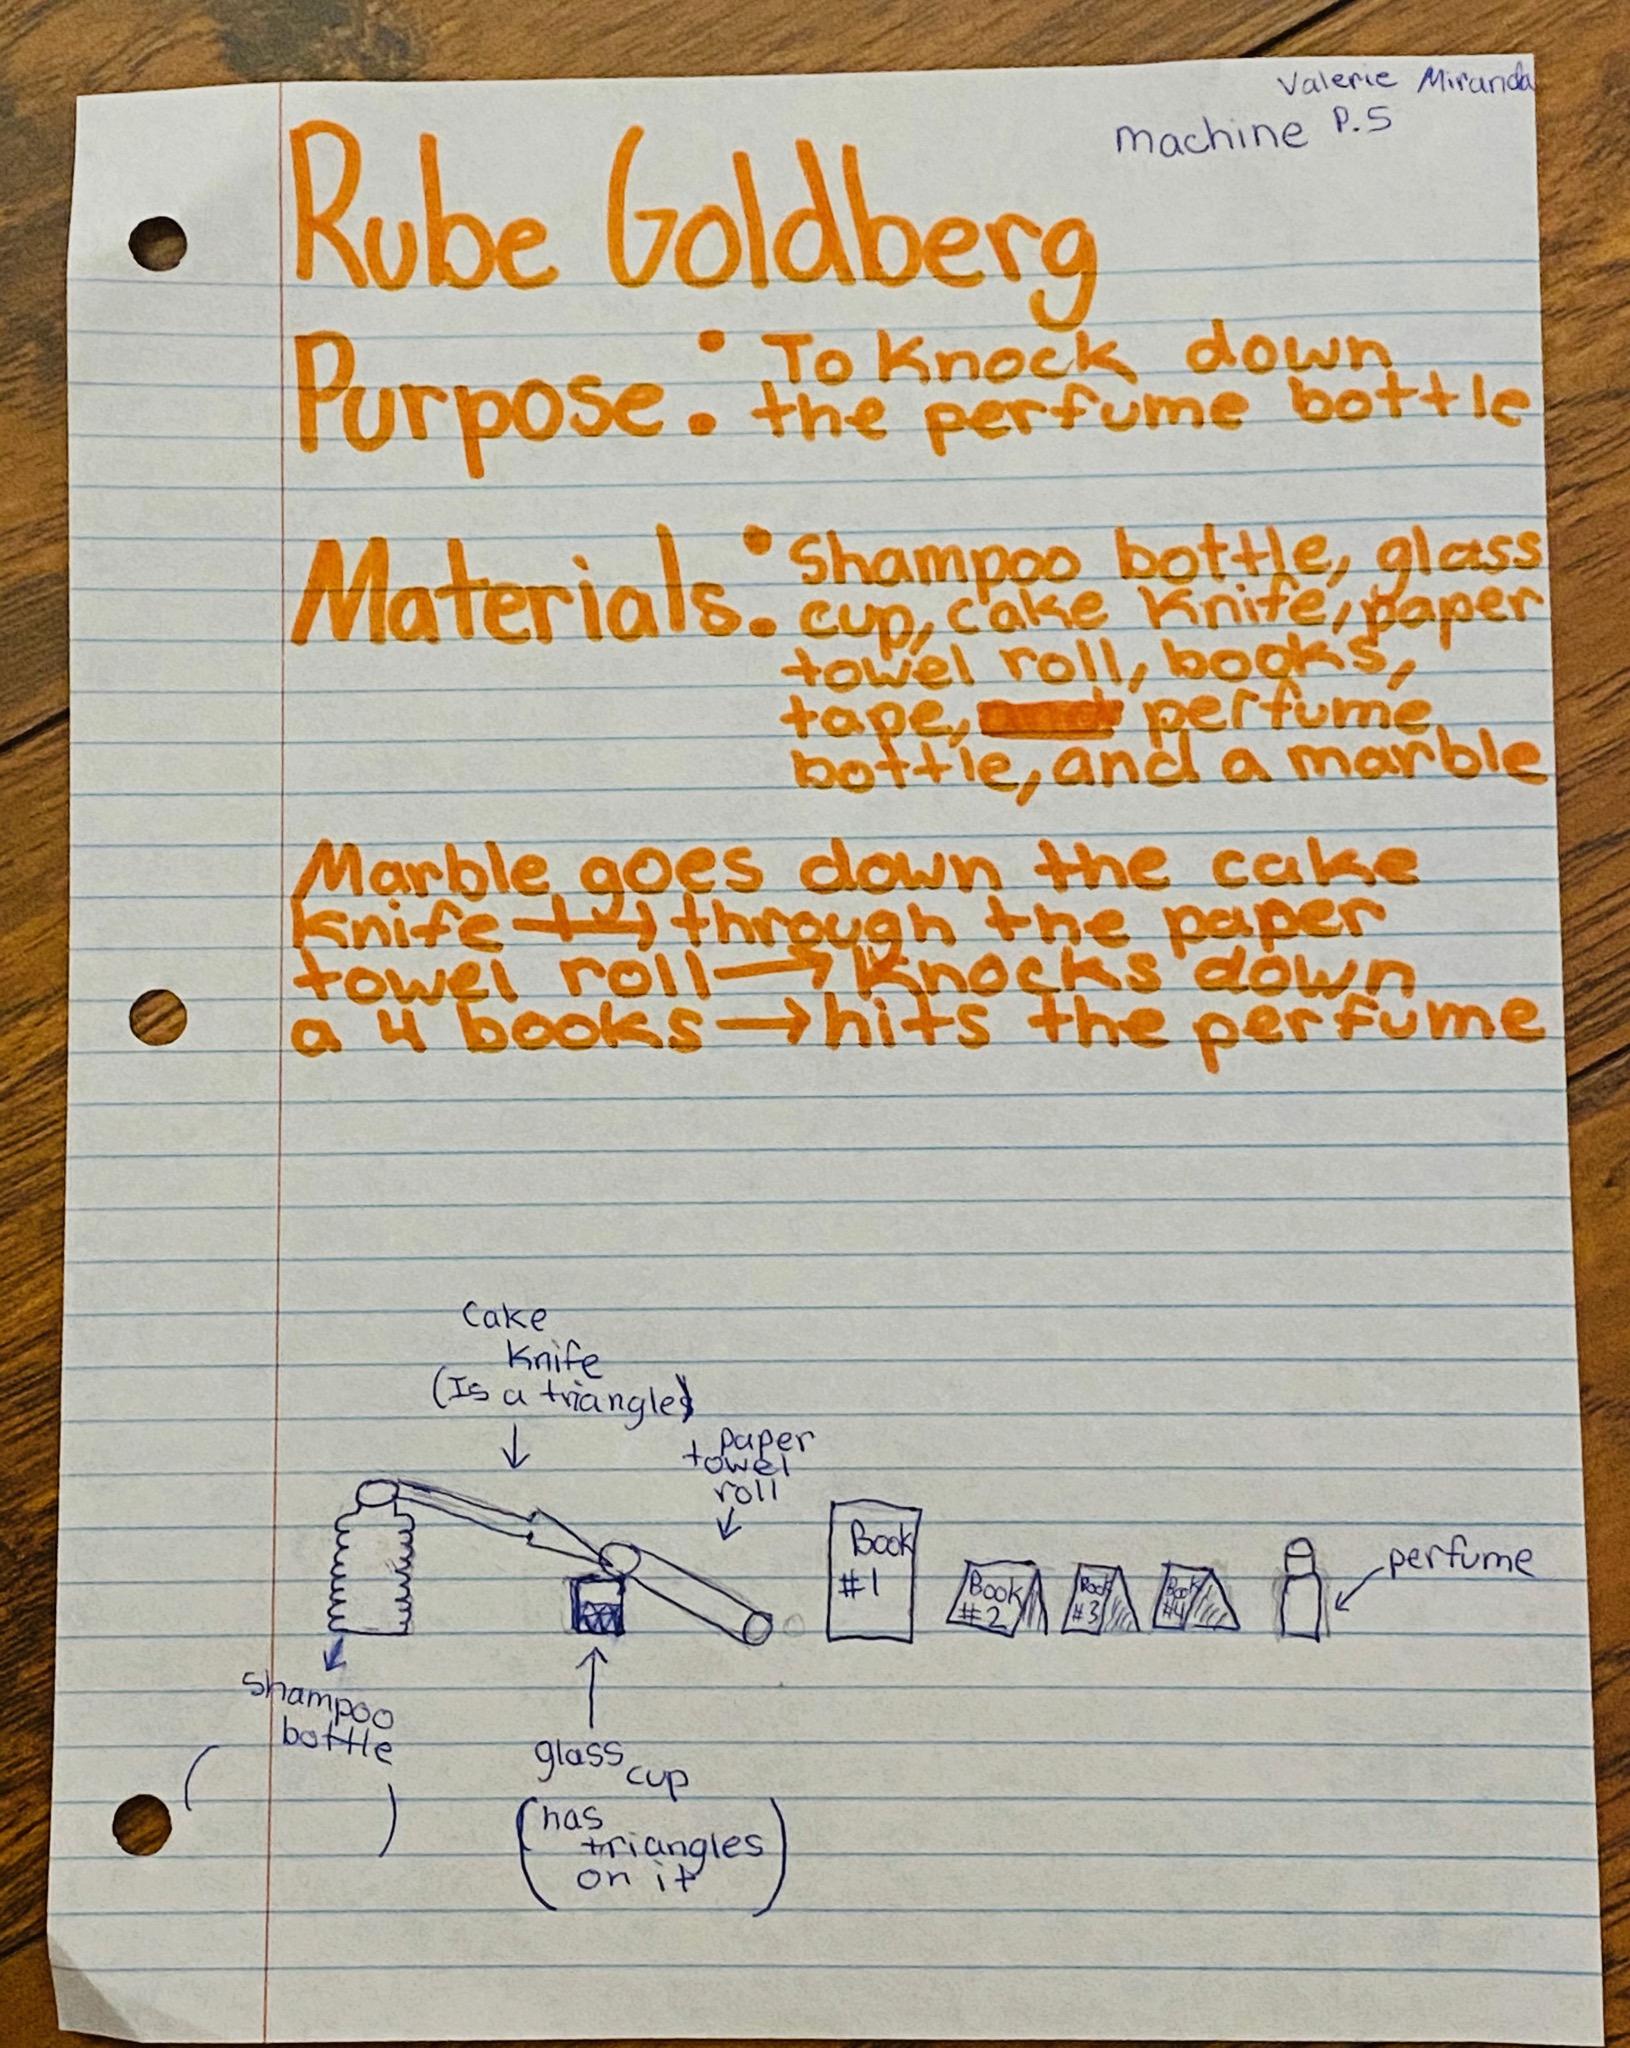 Valerie Miranda
Machine P.5
Rube Goldberg
Purpose: To Knock down
the perfume bottle
Materials: Shampoo bottle, glass
cup, cake knife, paper
towel roll, books,
tape, perfume
bottle, and a marble
Marble goes down the cake
knife → through the paper
towel roll → Knocks down
a 4 books → hits the perfume
Cake
Knife
(Is a triangle)
paper
towel
roll
Book
#1
Book
#2
Book
#3
Book
#4
perfume
Shampoo
bottle
( )
glass
cup
(has
triangles
on it)